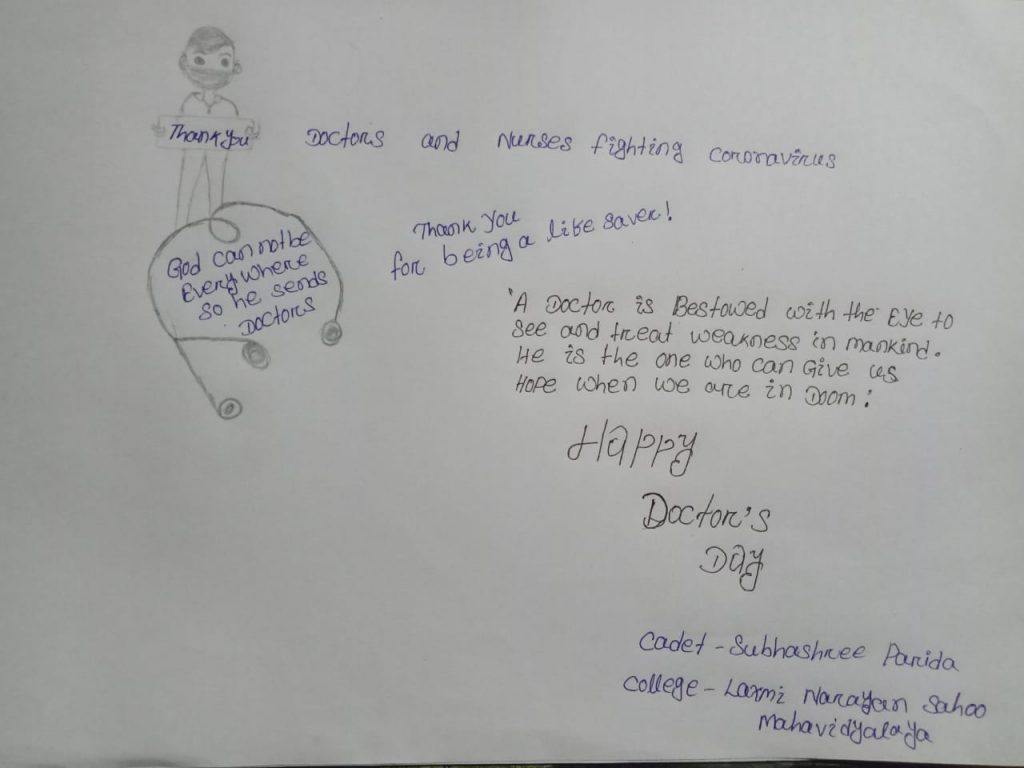 Thank you
Doctors and Nurses fighting coronavirus
Thank you
for being a life saver!
God can not be
Everywhere
so he sends
Doctors
'A Doctor is Bestowed with the Eye to
see and treat weakness in mankind.
He is the one who can Give us
Hope when we are in Doom:
Happy
Doctor's
Day
Cadet - Subhashree Parida
College - Laxmi Narayan Sahoo
Mahavidyalaya